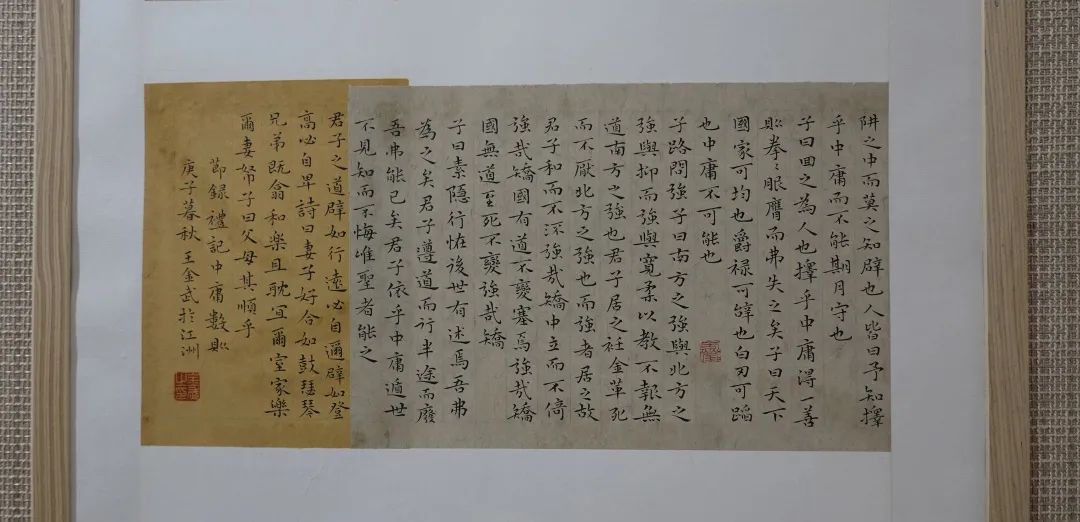 阱之中而莫之知辟也人皆曰予知擇
乎中庸而不能期月守也
子曰回之為人也擇乎中庸得一善
則拳〻服膺而弗失之矣子曰天下
國家可均也爵祿可辭也白刃可蹈
也中庸不可能也
子路問強子曰南方之強與北方之
強與抑而強與寬柔以教不報無
道南方之強也君子居之衽金革死
而不厭北方之強也而強者居之故
君子和而不流強哉矯中立而不倚
強哉矯國有道不變塞焉強哉矯
國無道至死不變強哉矯
子曰素隱行怪後世有述焉吾弗
為之矣君子遵道而行半途而廢
吾弗能已矣君子依乎中庸遁世
不見知而不悔唯聖者能之
君子之道辟如行遠必自邇辟如登
高必自卑詩曰妻子好合如鼓瑟琴
兄弟既翕和樂且耽宜爾室家樂
爾妻帑子曰父母其順乎
節錄禮記中庸數則
庚子暮秋王金武於江洲